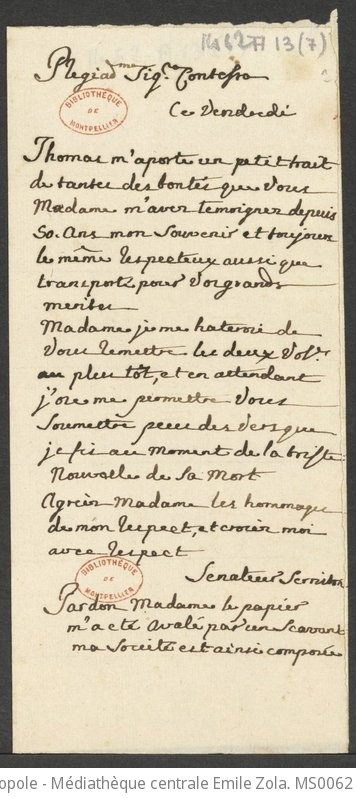 13 (7)
Ce Vendredi
BIBLIOTHÈQUE
DE
MONTPELLIER
Thomas m'aporte un petit trait
de tantes des bontés que Vous
Madame m'avez temoignez depuis
30. Ans mon Souvenir et toujours
le même respectueux aussi que
transporté pour Vos grands
merites
Madame je me haterois de
Vous remettre les deux Vol.s
au plus tôt, et en attendant
j'ose me promettre Vous
Soumettre des Vers que
je fis au moment de la triste
Nouvelle de Sa Mort
Agreéz Madame les hommages
de mon respect, et croiez moi
avec respect
Senateur
BIBLIOTHÈQUE
DE
MONTPELLIER
Pardon Madame le papier
m'a eté par un Scavant
ma Société est ainsi composée
opole - Médiathèque centrale Emile Zola. MS0062